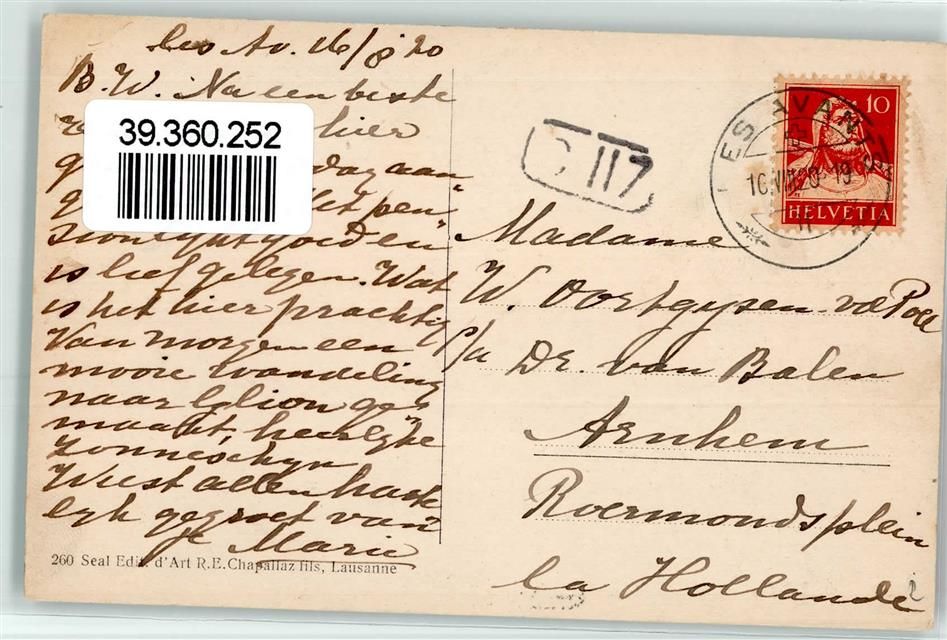 Les Av. 16/8 20
B. W. Na een beste
hier
39.360.252
dag aan
Het pen-
sion lykt goed en
is lief gelegen. Wat
is het hier prachtig
Van morgen een
mooie wandeling
naar Glion ge-
maakt, heerlyke
zonneschyn
Weest allen harte-
lyk gegroet van
je Marie
260 Seal Edit. d'Art R. E. Chapallaz fils, Lausanne
117
LES AVANTS
16.VIII.20-19
10
HELVETIA
Madame
W. Oortgysen-vd Poll
p/a Dr. van Balen
Arnhem
Roermondsplein
la Hollande